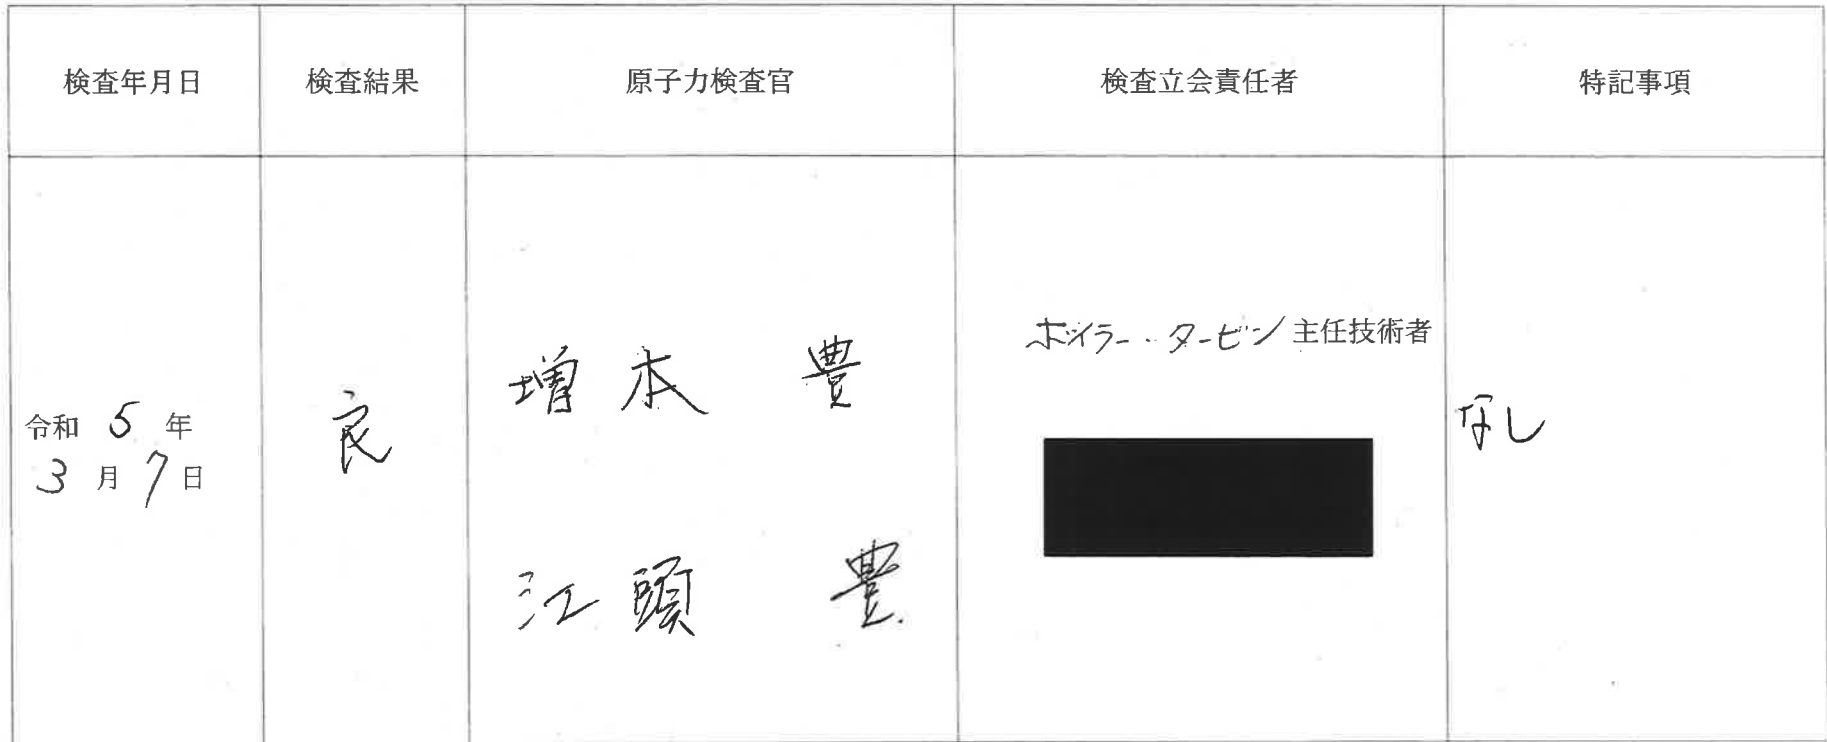 検査年月日
検査結果
原子力検査官
検査立会責任者
特記事項
令和 5 年
3 月 7 日
良
増本 豊
江頭 豊
ボイラー・タービン主任技術者
なし